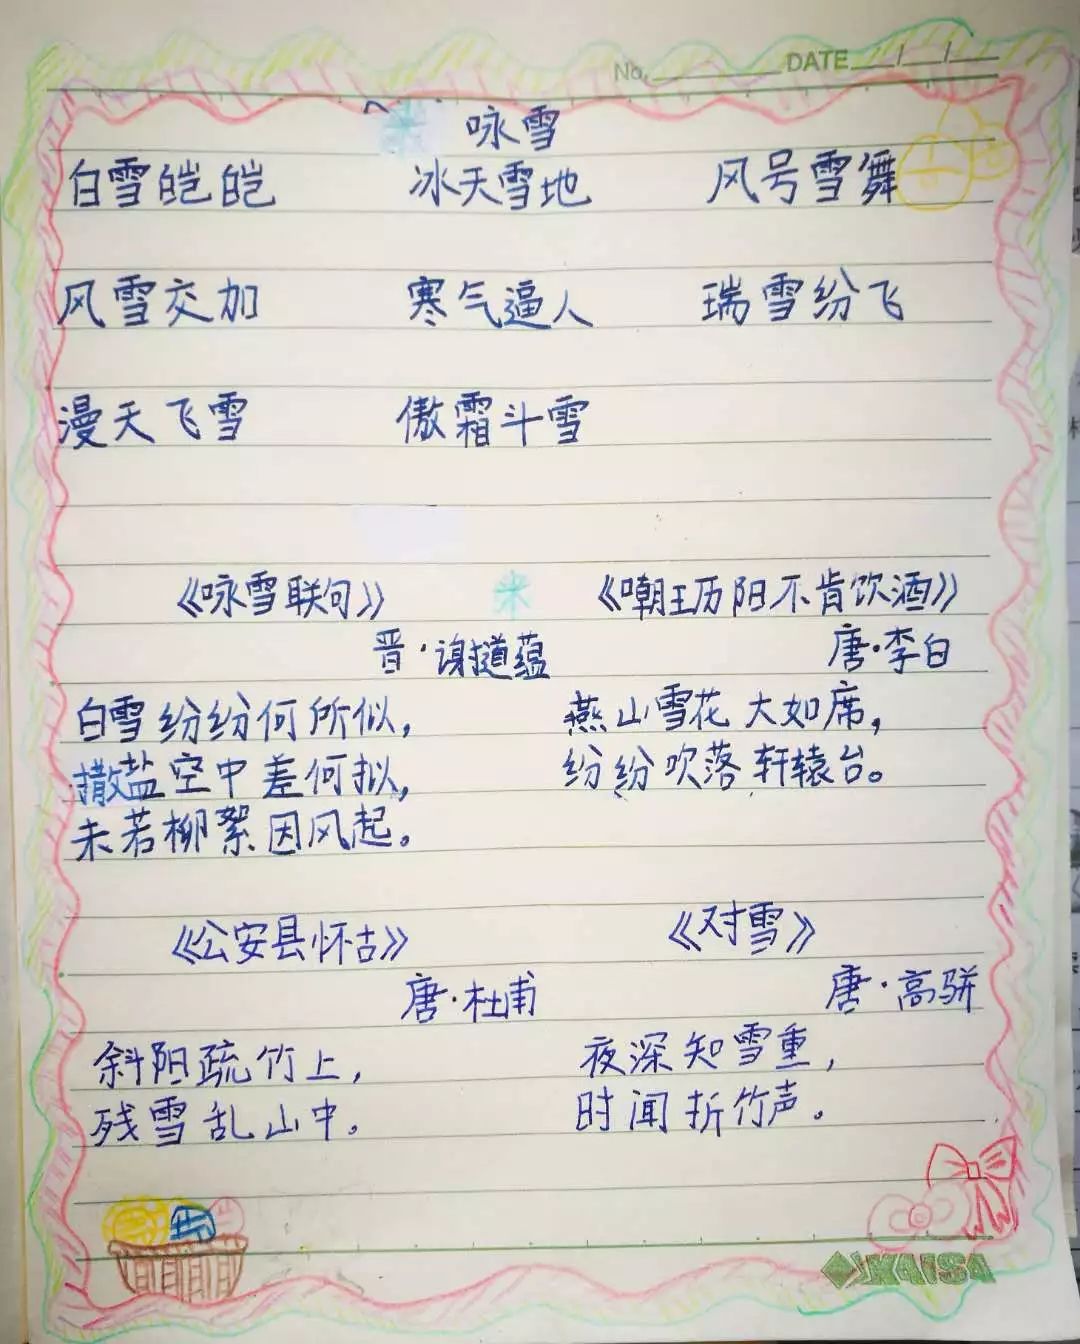 No. DATE / /
咏雪
白雪皑皑 冰天雪地 风号雪舞
风雪交加 寒气逼人 瑞雪纷飞
漫天飞雪 傲霜斗雪
《咏雪联句》 《嘲王历阳不肯饮酒》
晋·谢道蕴 唐·李白
白雪纷纷何所似, 燕山雪花大如席,
撒盐空中差何拟, 纷纷吹落轩辕台。
未若柳絮因风起。
《公安县怀古》 《对雪》
唐·杜甫 唐·高骈
斜阳疏竹上, 夜深知雪重,
残雪乱山中。 时闻折竹声。
KAISA